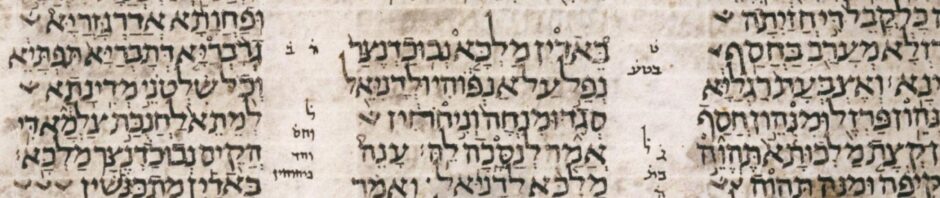 ד כל קבל די חזיתה
רזלא מערב בחסף
ינא ואצבעת רגליא
נהון פרזל ומנהון חסף
ן קצת מלכותא תהוה
קיפה ומנה תהוה
ט
בטע
ל
באדין מלכא נבוכדנצר
נפל על אנפוהי ולדניאל
סגד ומנחה וניחחין
אמר לנסכה לה׃ ענה
מלכא לדניאל ואמר
ל
ופחותא אדרגזריא
גדבריא דתבריא תפתיא
וכל שלטני מדינתא
למתא לחנכת צלמא די
הקים נבוכדנצר מלכא׃
באדין מתכנשין